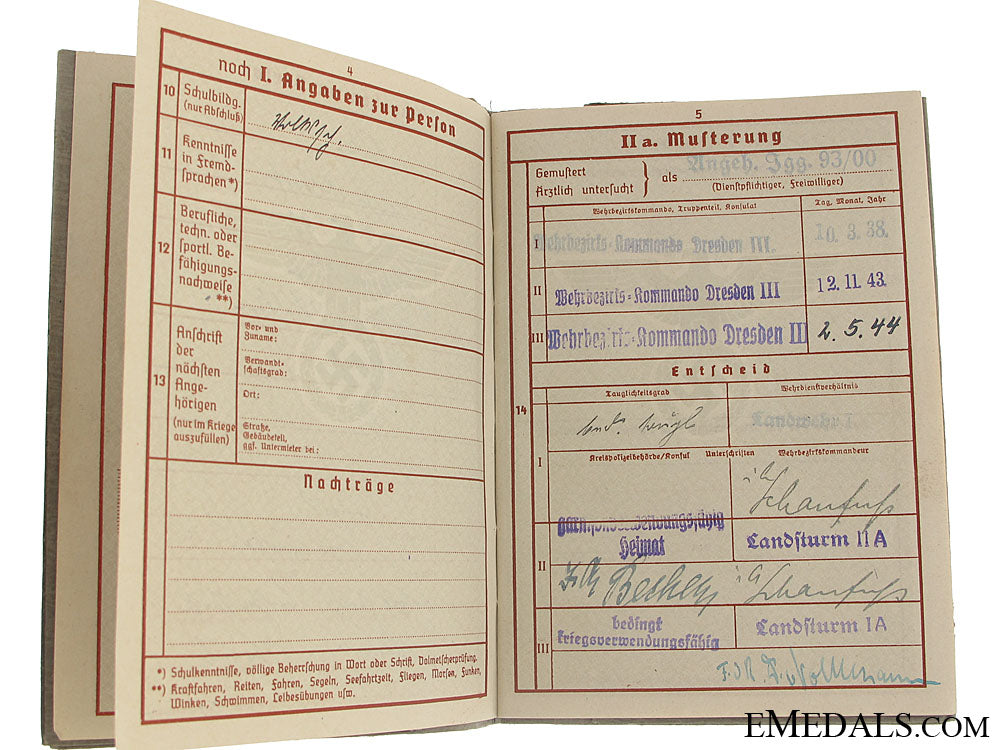 4
noch I. Angaben zur Person
10
Schulbildg.
(nur Abschluß)
11
Kenntnisse
in Fremd-
sprachen*)
12
Berufliche,
techn. oder
sportl. Be-
fähigungs-
nachweise
**)
13
Anschrift
der
nächsten
Ange-
hörigen
(nur im Kriege
auszufüllen)
Vor- und
Zuname:
Verwandt-
schaftsgrad:
Ort:
Straße,
Gebäudeteil,
ggf. Untermieter bei:
Nachträge
*) Schulkenntnisse, völlige Beherrschung in Wort oder Schrift, Dolmetscherprüfung.
**) Kraftfahren, Reiten, Fahren, Segeln, Seefahrtzeit, Fliegen, Morsen, Funken,
Winken, Schwimmen, Leibesübungen usw.
5
IIa. Musterung
Gemustert
Ärztlich untersucht
als
Angeh. Jgg. 93/00
(Dienstpflichtiger, Freiwilliger)
Wehrbezirkskommando, Truppenteil, Konsulat
Tag, Monat, Jahr
I
Wehrbezirks-Kommando Dresden III.
10. 3. 38.
II
Wehrbezirks-Kommando Dresden III
12. 11. 43.
III
Wehrbezirks-Kommando Dresden III
2. 5. 44
14
Entscheid
Tauglichkeitsgrad
Wehrdienstverhältnis
Landwehr I.
I
Kreispolizeibehörde/Konsul
Unterschriften
Wehrbezirkskommandeur
Schaufuß
II
Garnisonverwendungsfähig
Heimat
Landsturm II A
Schaufuß
III
bedingt
kriegsverwendungsfähig
Landsturm I A
EMEDALS.COM